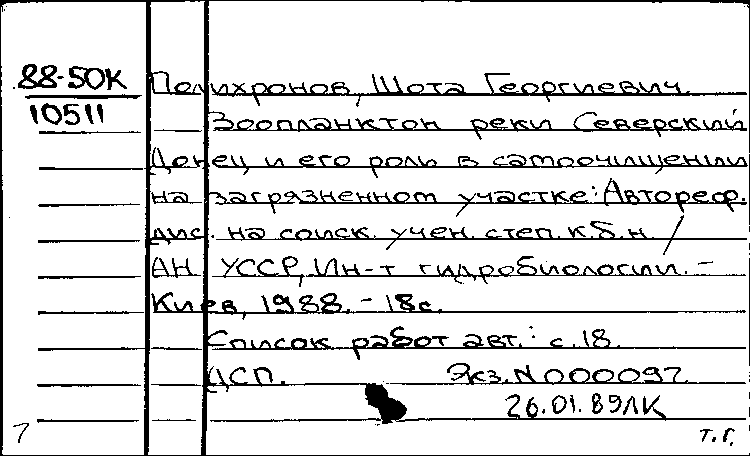 88-50К Полихронов, Шота Георгиевич.
10511 Зоопланктон реки Северский
Донец и его роль в самоочищении
на загрязненном участке: Автореф.
дис. на соиск. учен. степ. к.б.н /
АН УССР, Ин-т гидробиологии. -
Киев, 1988. - 18с.
Список работ авт.: с. 18.
ЦСП. Экз. N 000097
26.01.89ЛК
7 т.г.